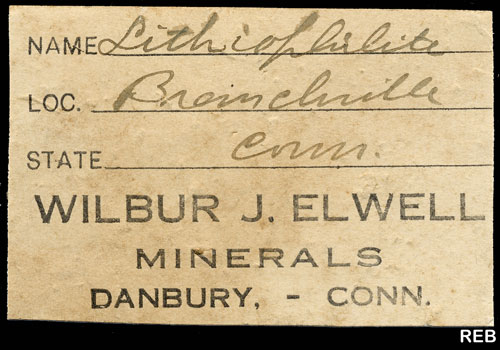 NAME Lithiophilite
LOC. Branchville
STATE Conn.
WILBUR J. ELWELL
MINERALS
DANBURY, - CONN.
REB